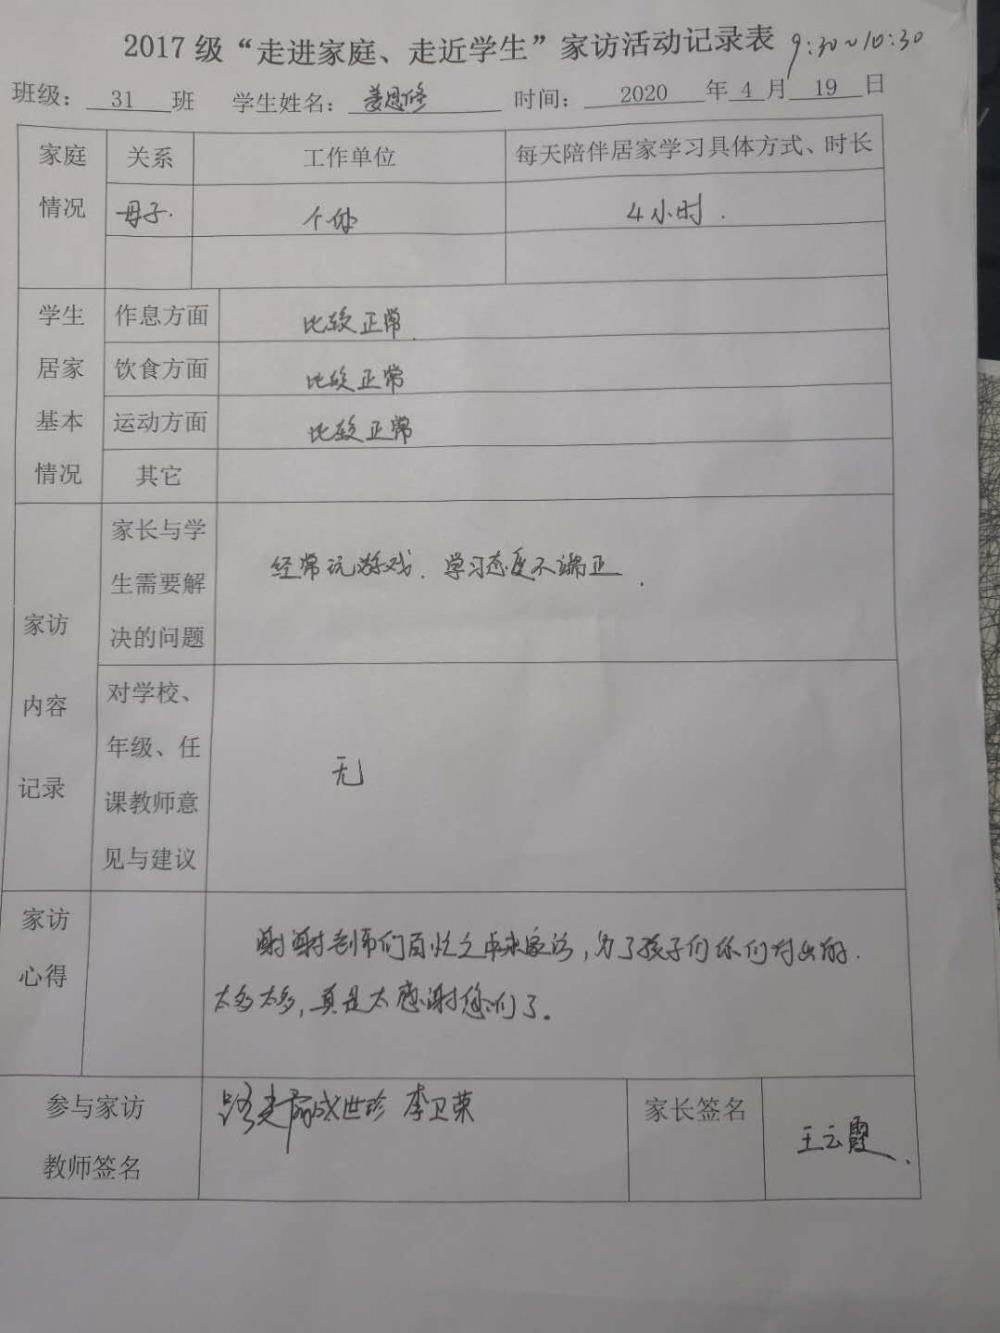 2017级“走进家庭、走近学生”家访活动记录表 9:30~10:30
班级： 31 班 学生姓名：姜恩修 时间： 2020 年 4 月 19 日
家庭情况 关系 工作单位 每天陪伴居家学习具体方式、时长
母子. 个体 4小时.
学生居家基本情况
作息方面 比较正常.
饮食方面 比较正常
运动方面 比较正常
其它
家访内容记录
家长与学
生需要解
决的问题
经常玩游戏. 学习态度不端正.
对学校、
年级、任
课教师意
见与建议
无
家访
心得
谢谢老师们百忙之中来家访,为了孩子们你们付出的.
太多太多,真是太感谢您们了。
参与家访
教师签名
成世珍 李卫荣
家长签名
王云霞.